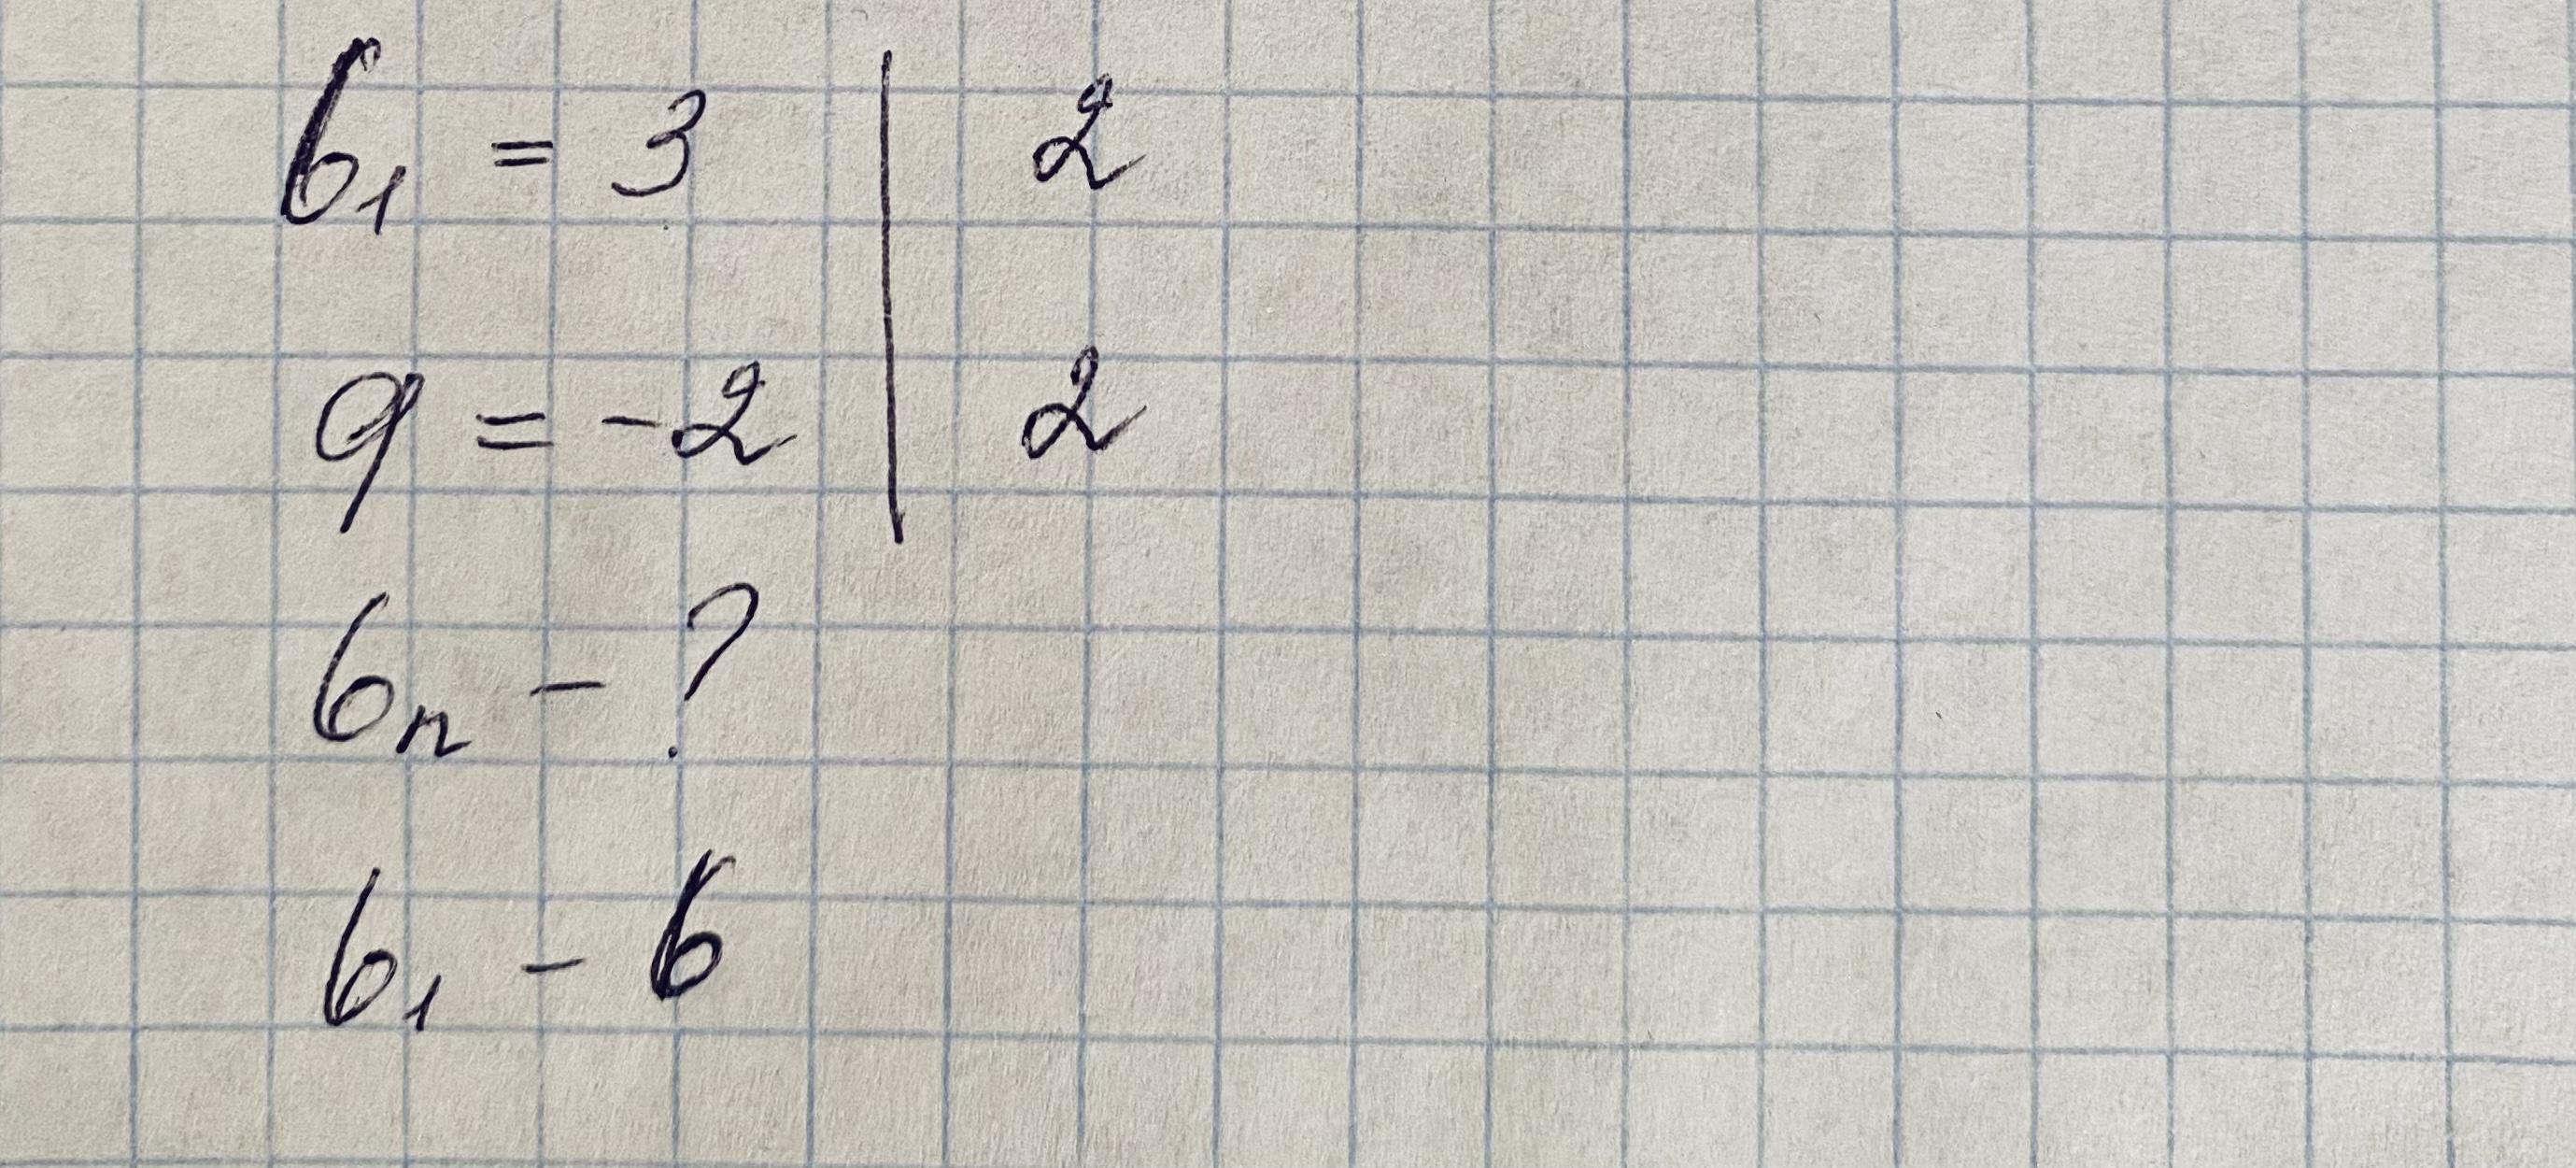 b₁ = 3 | 2
q = -2 | 2
bₙ - ?
b₁ - 6